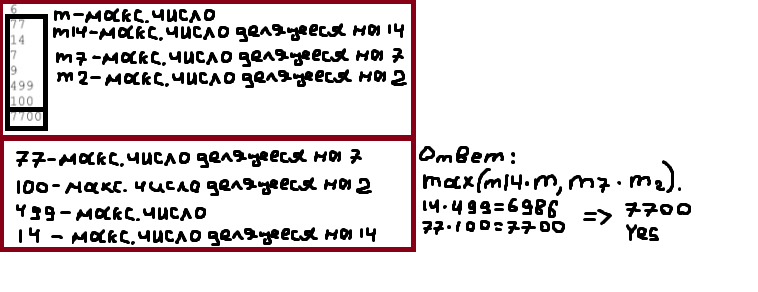 6
77
14
7
9
499
100
7700
m-макс.число
m14-макс.число делящееся на 14
m7-макс.число делящееся на 7
m2-макс.число делящееся на 2
77-макс.число делящееся на 7
100-макс. число делящееся на 2
499-макс.число
14 - макс.число делящееся на 14
Ответ:
max(m14·m, m7·m2).
14·499=6986
77·100=7700
=> 7700
Yes